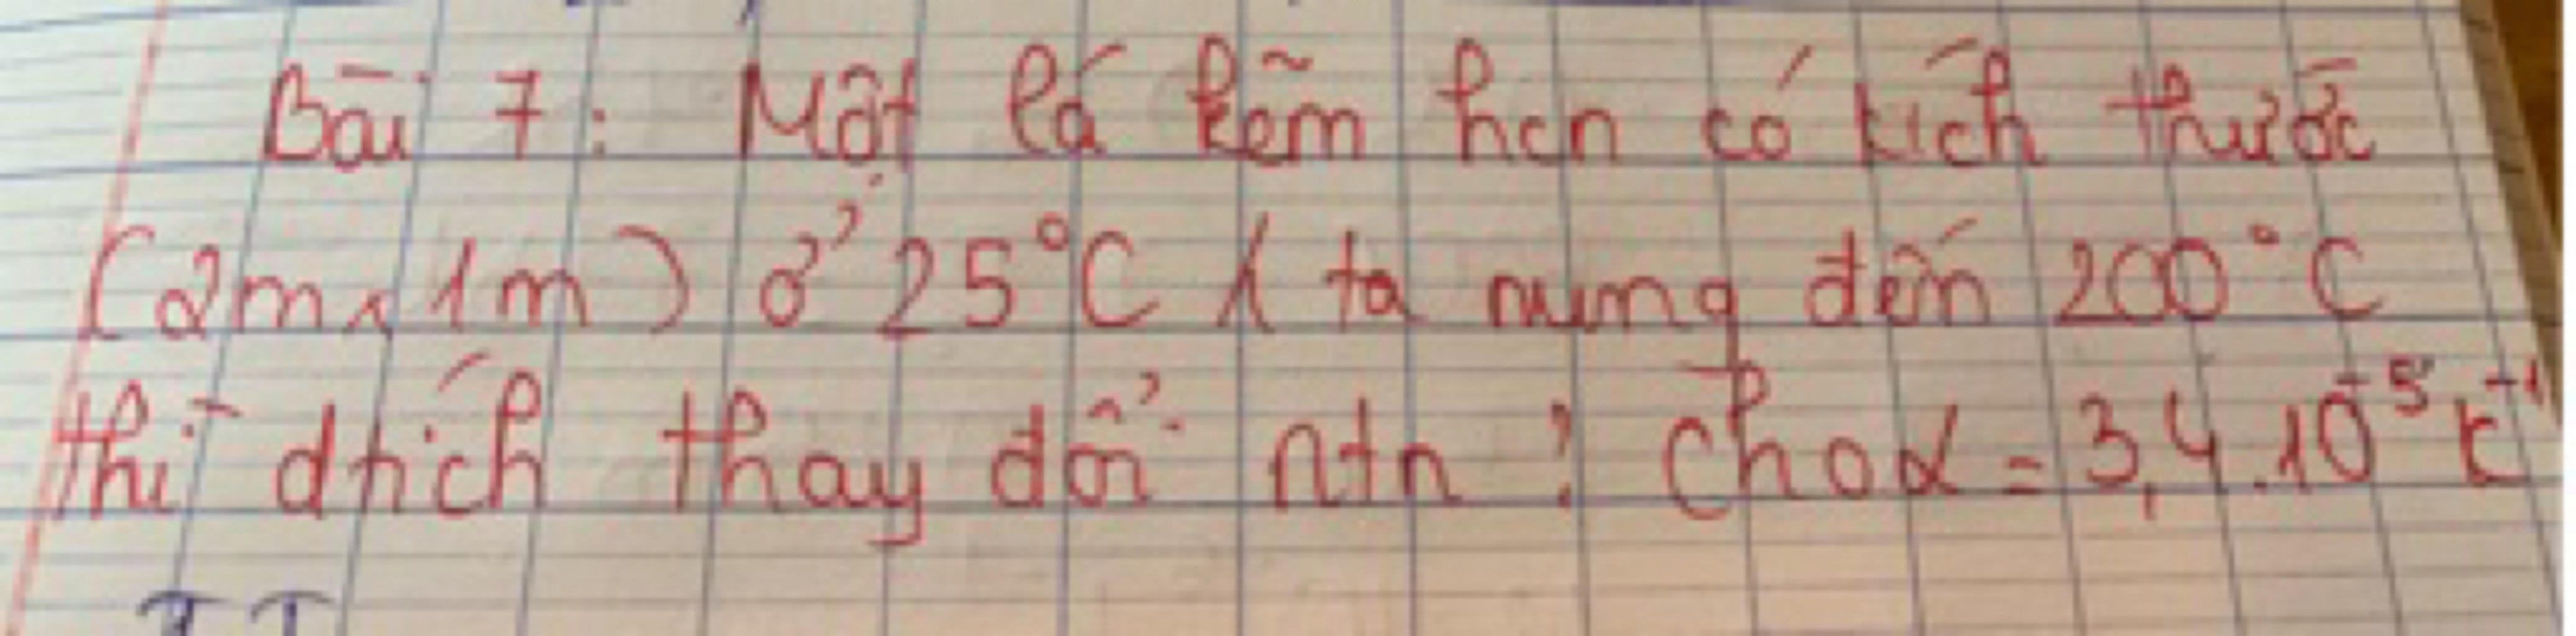 Bài 7: Một lá kẽm hcn có kích thước
(2m x 1m) ở 25°C ( ta nung đến 200°C
thì dtích thay đổi ntn? Cho α = 3,4.10⁻⁵ K⁻¹